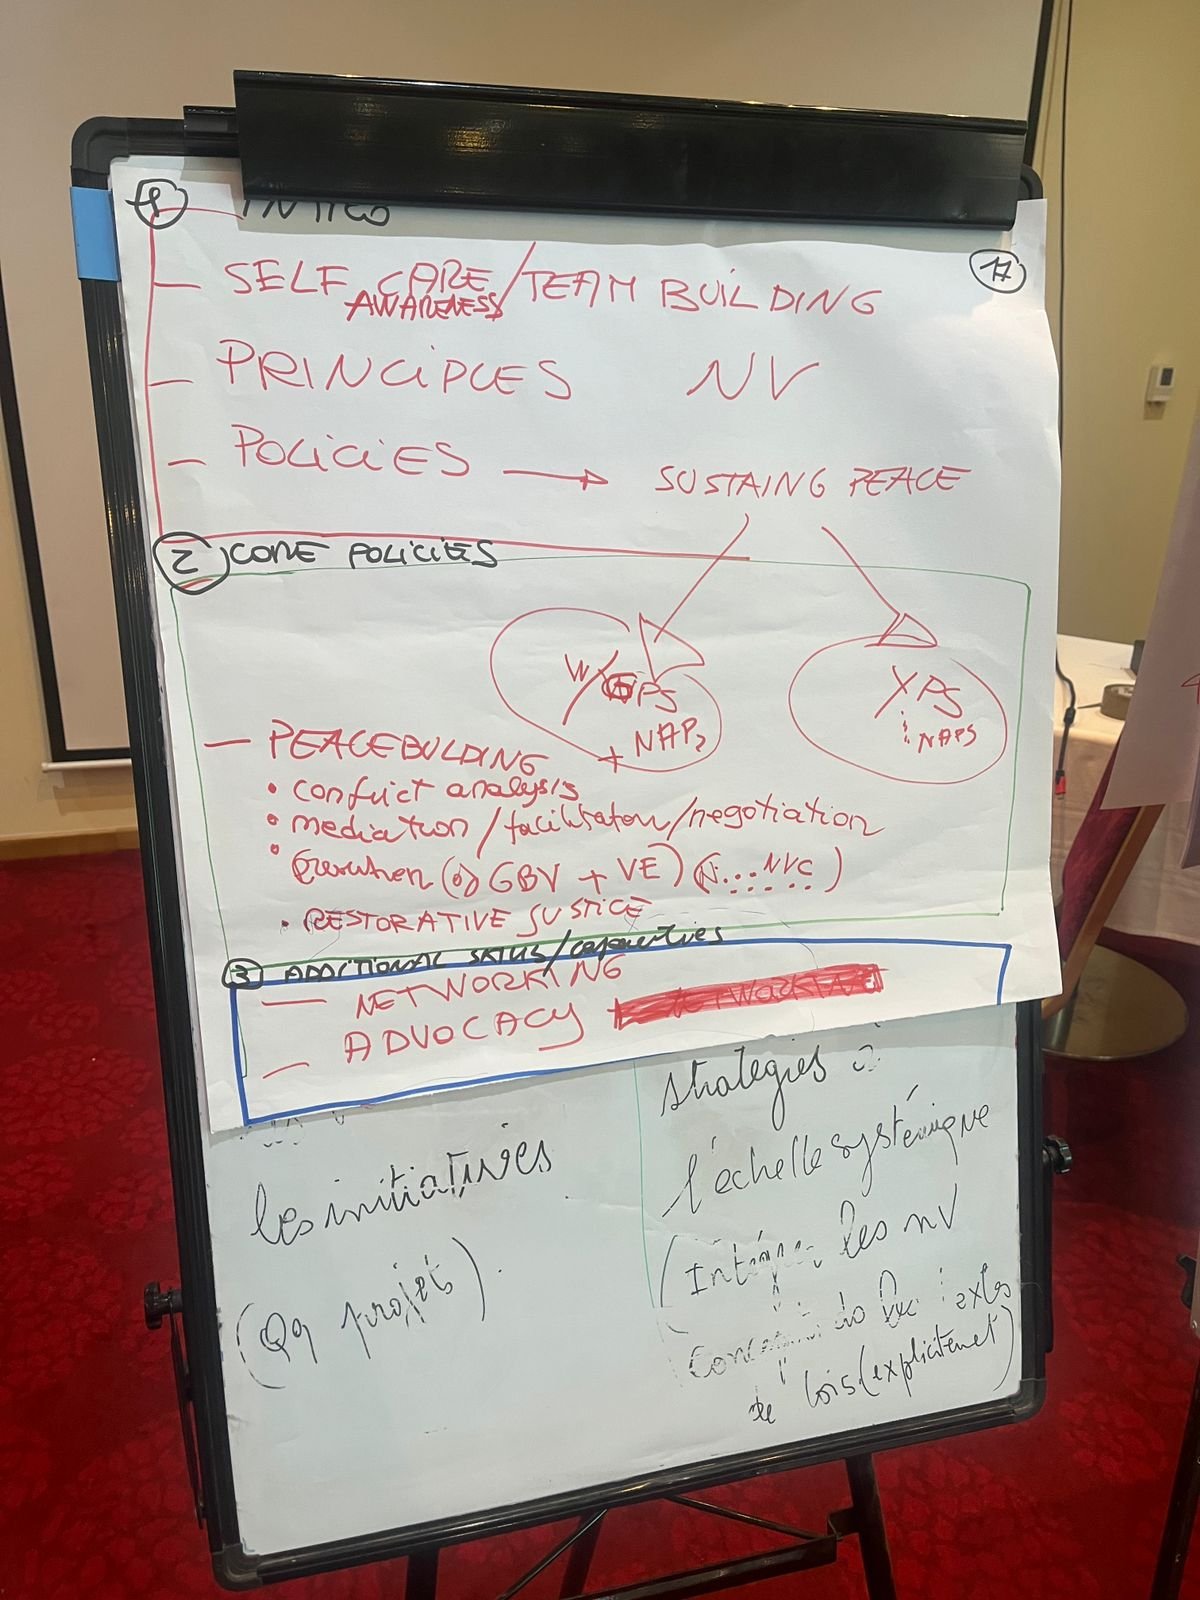 1
17
SELF CARE/TEAM BUILDING
AWARENESS
PRINCIPLES NV
POLICIES → SUSTAING PEACE
2 CORE POLICIES
PS YPS
+ NAPs NAPS
— PEACEBULDING
• conflict analysis
• mediation/facilitation/negotiation
• (of GBV + VE) (N....NVC)
• RESTORATIVE JUSTICE
3 ADDITIONAL SKILLS/capacities
— NETWORKING
— ADVOCACY
les initiatives
(Qq projets).
stratégies à
l'échelle systémique
(Intégrer les nV
lois (explicitement)